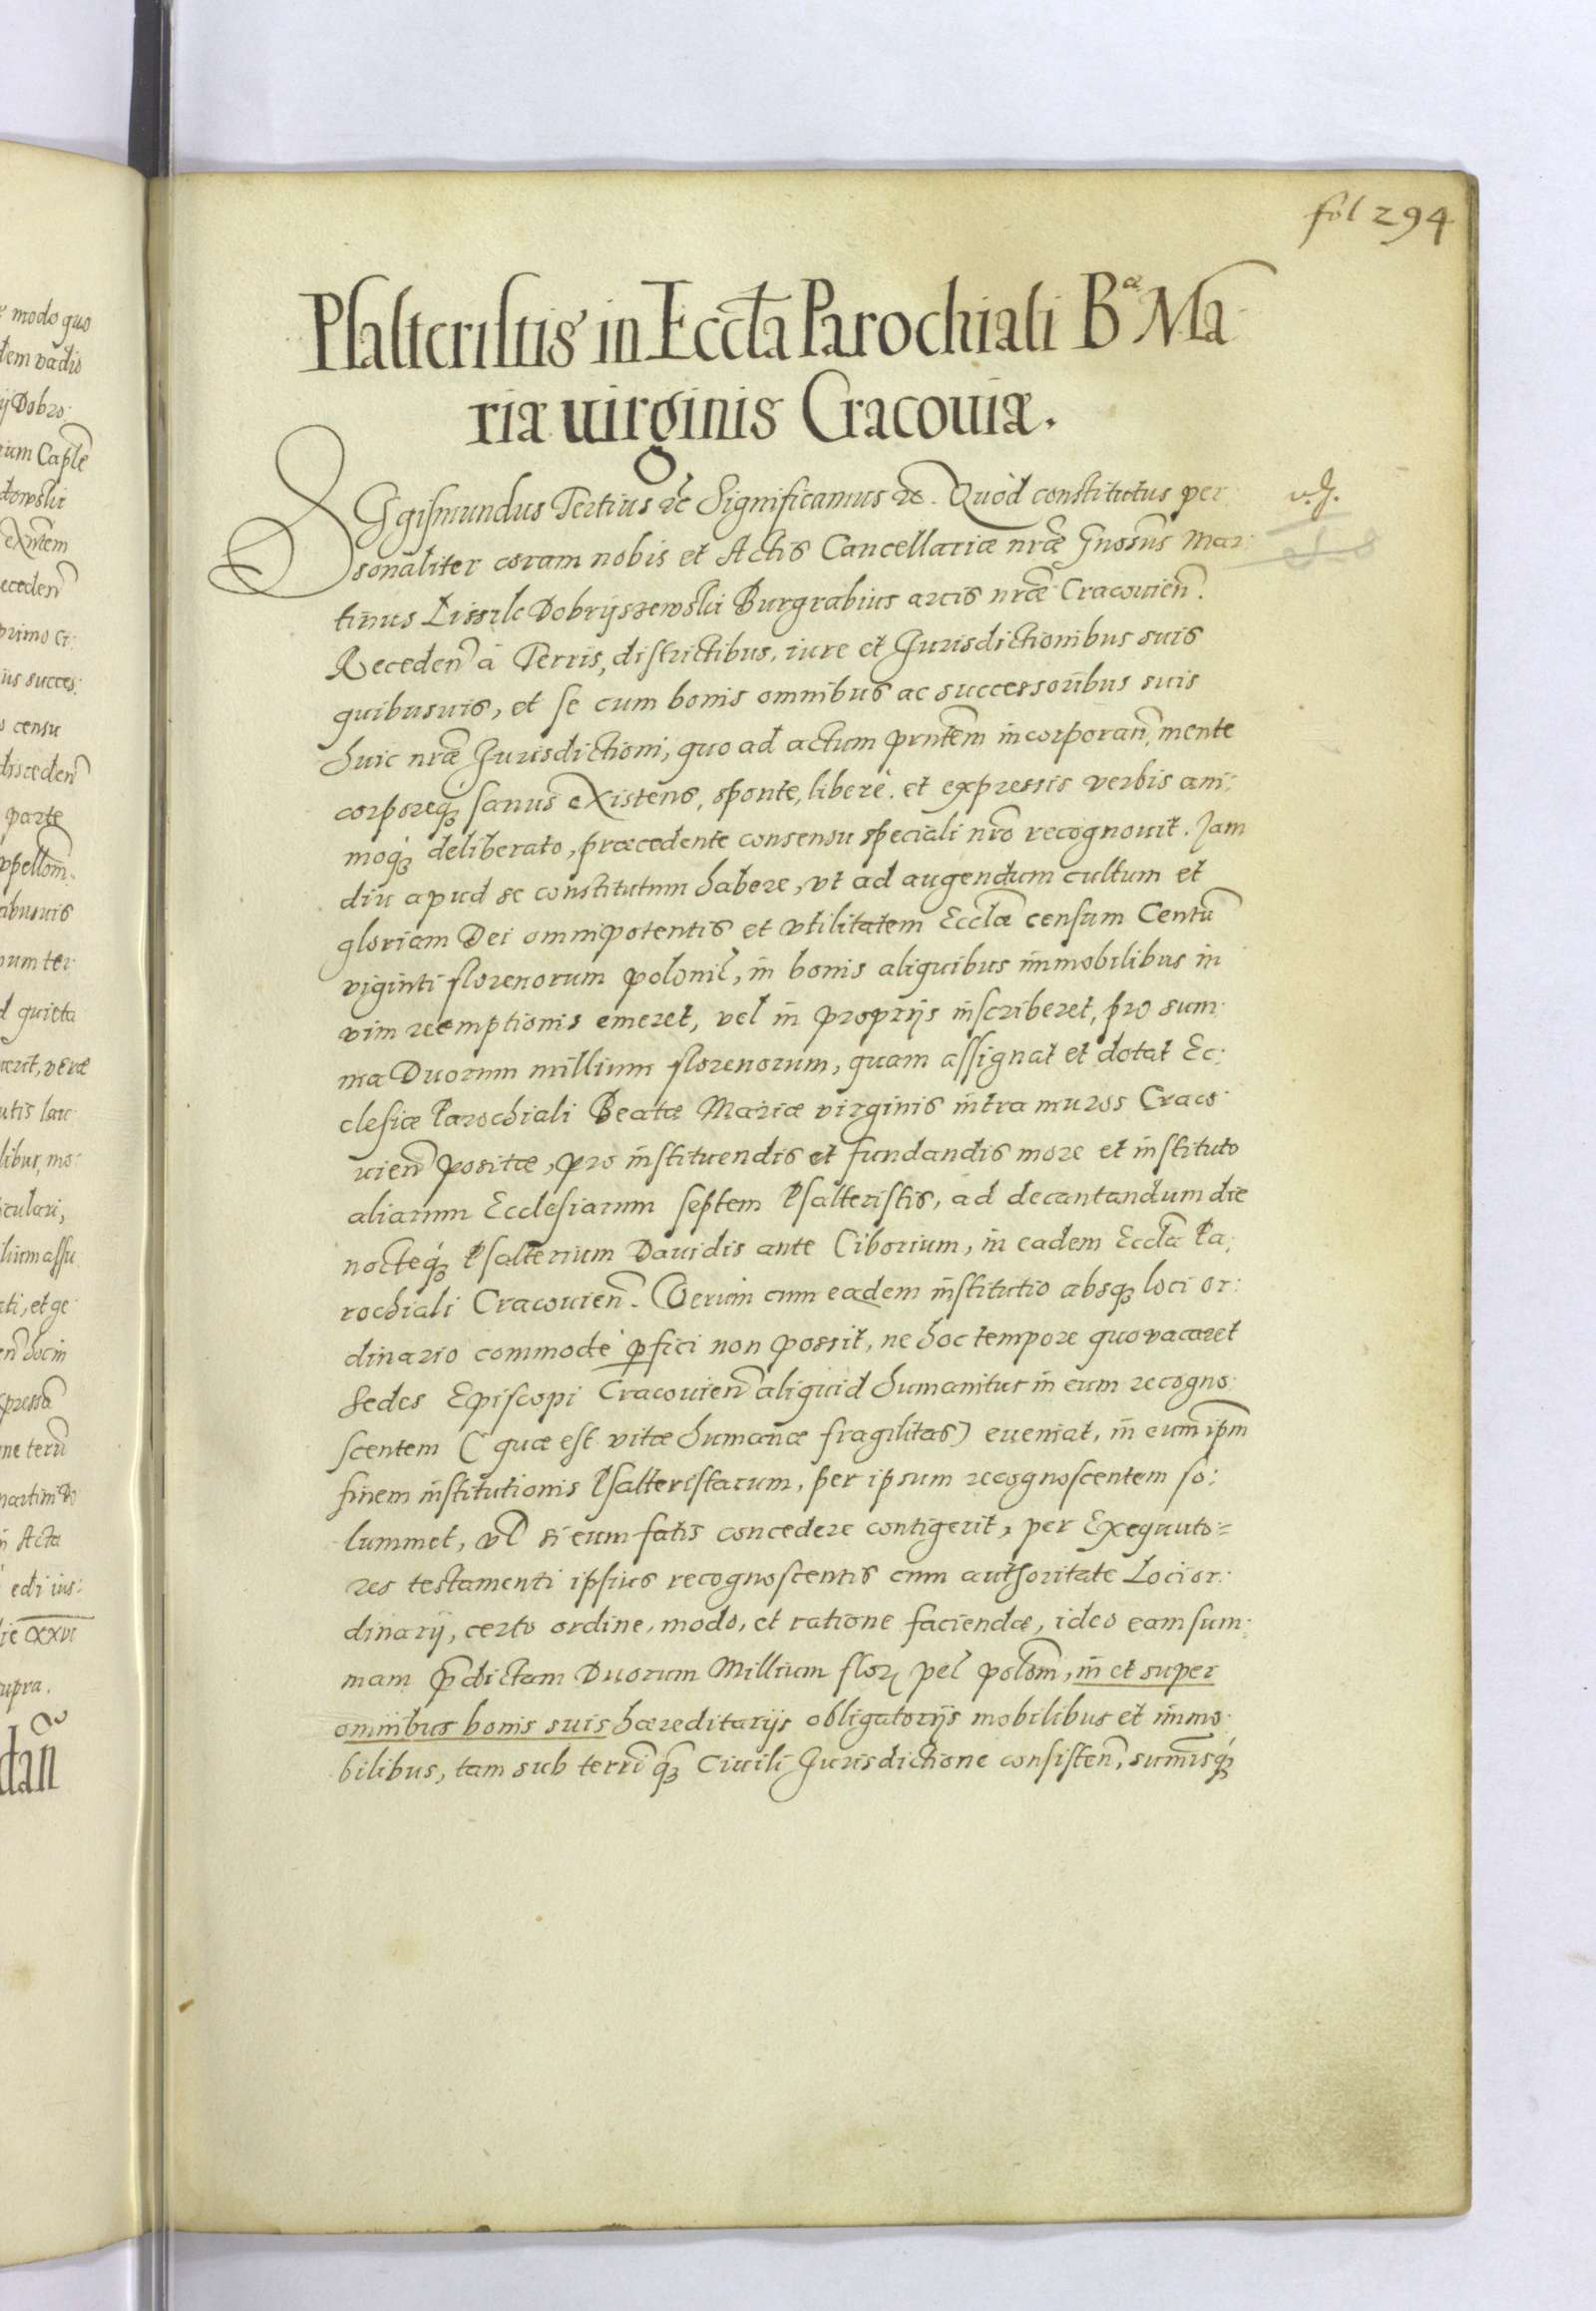 fol 294
Psalteristis in Eccl̃a Parochiali Bᵃᵉ Ma
riæ virginis Cracouiæ.
SIgismundus Tertius ꝛc̃ Significamus ꝛc. Quòd constitutus per
sonaliter coram nobis et Actis Cancellariæ nr̃æ Gnosus̃ Mar:
v. J.
tinus Dobrijszewski Burgrabius arcis nr̃æ Cracovien̄.
Receden̄ à Terris, districtibus, iure et Jurisdictionibus suis
quibusuis, et se cum bonis omnibus ac successoribus suis
huic nr̃æ Jurisdictioni, quo ad actum prn̄tem incorporan̄, mente
corporeq́ꝫ sanus existens, sponte, liberè. et expressis verbis ani:
moq́ꝫ deliberato, præcedente consensu speciali nr̃o recognouit. Jam
diu apud se constitutum habere, vt ad augendum cultum et
gloriam Dei omnipotentis et vtilitatem Eccl̃æ censum Centū
viginti florenorum polonil̃, in bonis aliquibus immobilibus in
vim reemptionis emeret, vel in proprijs inscriberet, pro sum:
ma Duorum millium florenorum, quam assignat et dotat Ec:
clesiæ Parochiali Beatæ Mariæ virginis intra muros Craco
uien̄ positæ, pro instituendis et fundandis more et instituto
aliarum Ecclesiarum septem Psalteristis, ad decantandum die
nocteq́ꝫ Psalterium Dauidis ante Ciborium, in eadem Eccl̃a Pa:
rochiali Cracouien̄. Verùm cum eadem institutio absqꝫ loci or:
dinario commodè ꝑfici non possit, ne hoc tempore quo vacaret
Sedes Episcopi Cracouien̄ aliquid humanitus in eum recogno:
scentem (quæ est vitæ humanæ fragilitas) eueniat, in eum ipm̄
finem institutionis Psalteristarum, per ipsum recognoscentem so:
lummet, vl̃ si eum fatis concedere contigerit, per Exequuto:
res testamenti ipsius recognoscentis cum authoritate Loci or:
dinarij, certo ordine, modo, et ratione faciendæ, ideo eam sum:
mam p̄dictam Duorum Millium floꝝ pel̃ polōm, in et super
omnibus bonis suis hæreditarijs obligatorijs mobilibus et immo:
bilibus, tam sub terri q̄ꝫ Ciuili Jurisdictione consisten̄, sum̄isq́ꝫ